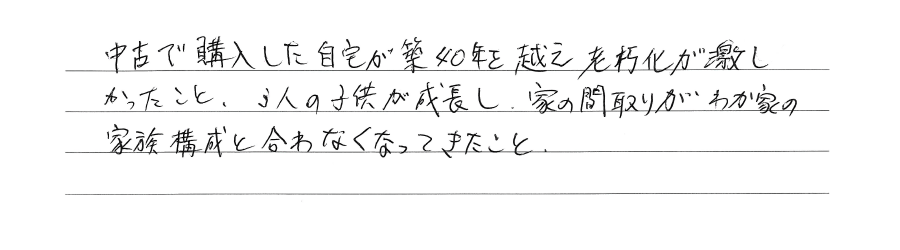 中古で購入した自宅が築40年を越え老朽化が激し
かったこと、3人の子供が成長し、家の間取りがわが家の
家族構成と合わなくなってきたこと.